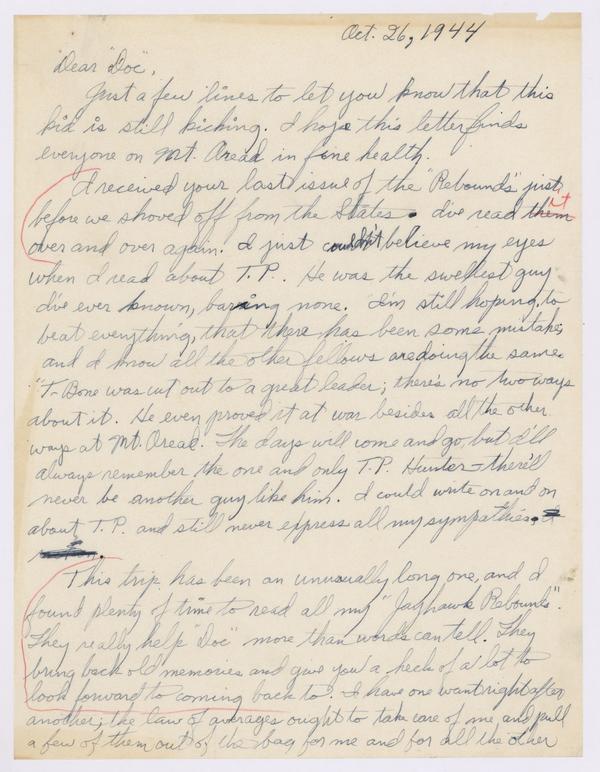 Oct. 26, 1944
Dear "Doc",
Just a few lines to let you know that this
kid is still kicking. I hope this letter finds
everyone on Mt. Oread in fine health.
I received your last issue of the "Rebounds" just
before we shoved off from the States. I've read them it
over and over again. I just couldn't believe my eyes
when I read about T.P.. He was the swellest guy
I've ever known, baring none. I'm still hoping, to
beat everything, that there has been some mistake,
and I know all the other fellows are doing the same.
"T-Bone was cut out to a great leader; there's no two ways
about it. He even proved it at war besides all the other
ways at Mt. Oread. The days will come and go, but I'll
always remember the one and only T.P. Hunter – there'll
never be another guy like him. I could write on and on
about T.P. and still never express all my sympathies.
This trip has been an unusually long one, and I
found plenty of time to read all my "Jayhawk Rebounds".
They really help "Doc" more than words can tell. They
bring back old memories and give you a heck of a lot to
look forward to coming back to. I have one want right after
another; the law of averages ought to take care of me and pull
a few of them out of the bag for me and for all the other